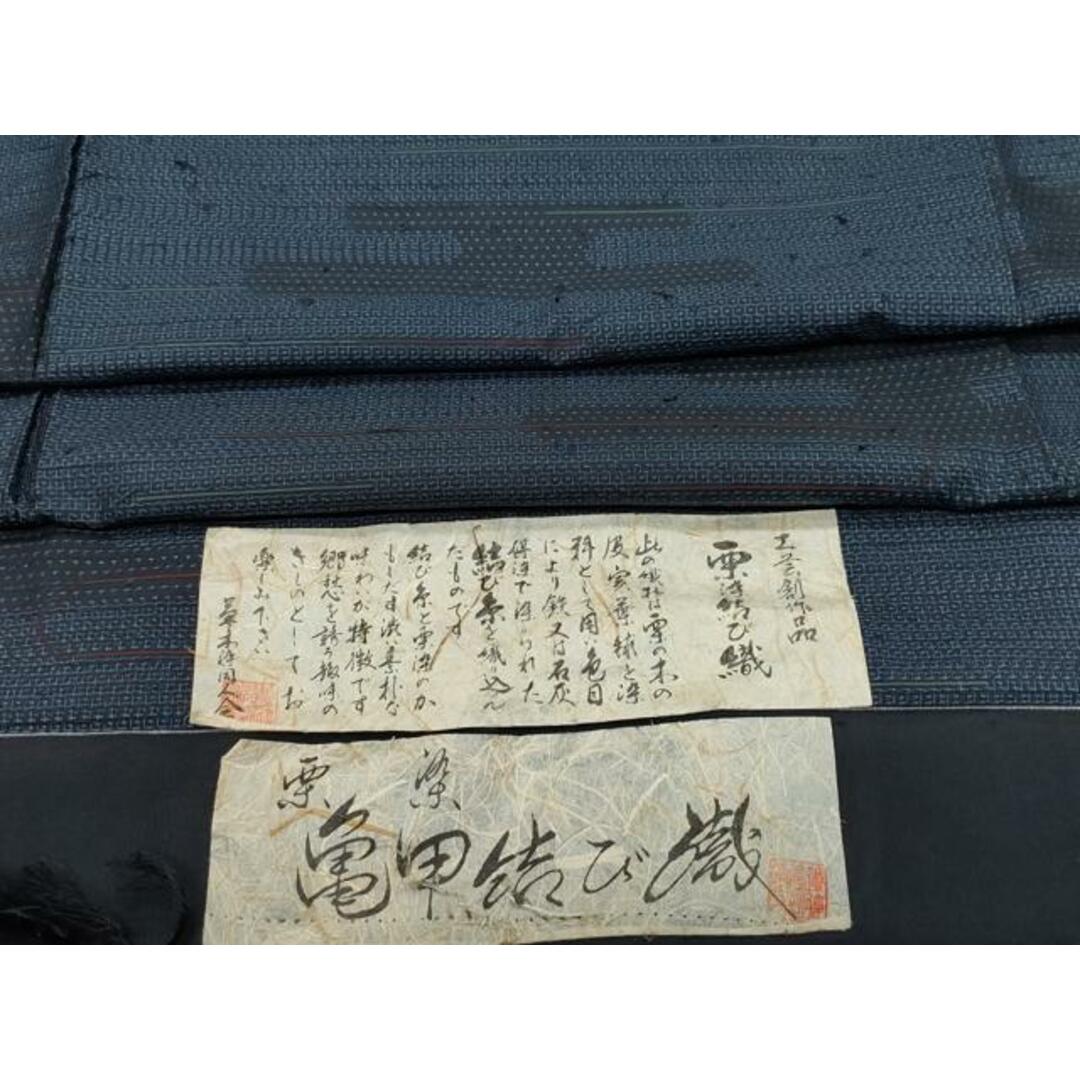 工芸創作品
栗染結び織
此の織物は栗の木の
皮実葉諸を染
料として用い色目
により鉄又は石灰
媒染で染られた
結び糸を織り込ん
だものです
結び糸と栗染のか
もしだす渋い素朴な
味わいが特徴です
郷愁を誘う趣味の
きものとしてお
楽しみ下さい
草木染同人会
栗染
亀甲結び織